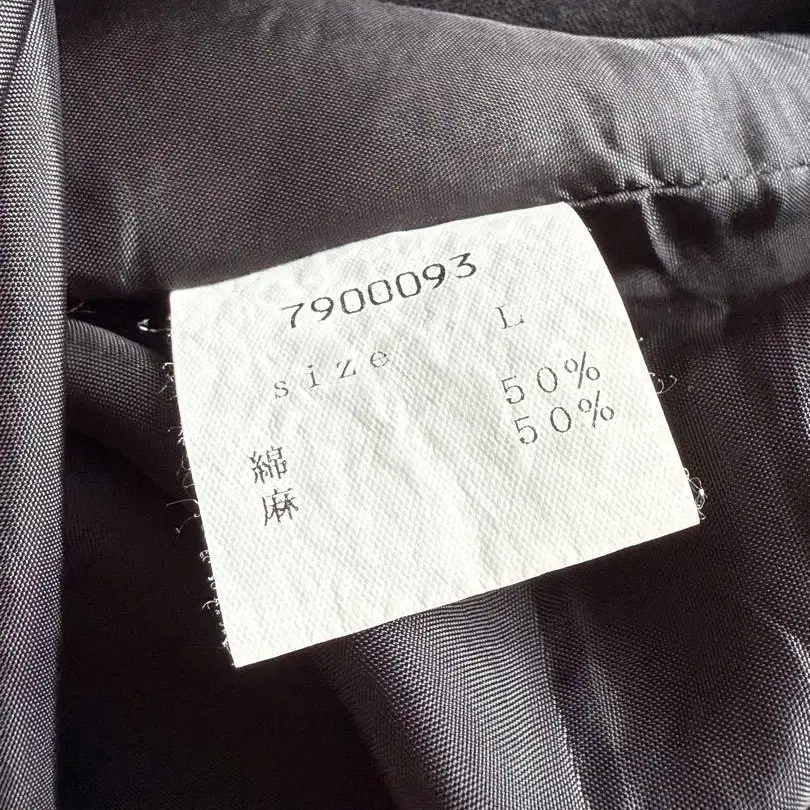 7900093
size L
綿 50%
麻 50%